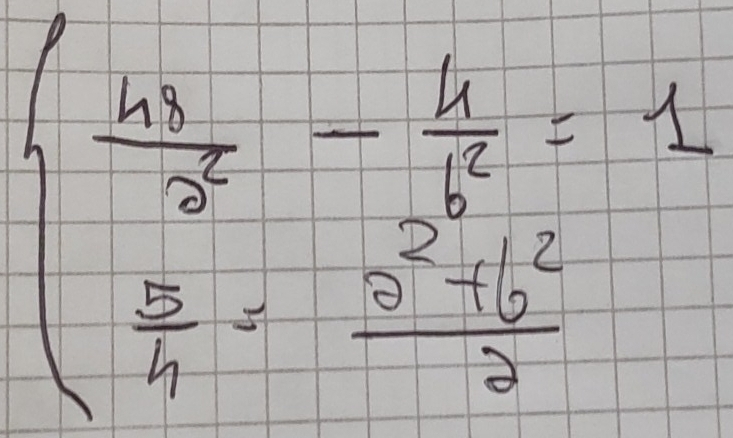 48/a² - 4/b² = 1
5/4 = (a² + b²)/a